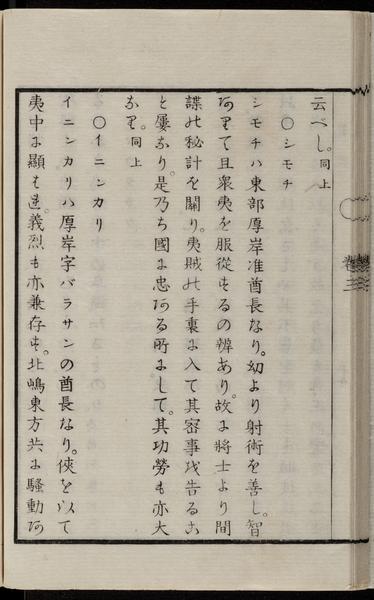 云べし。同上
〇シモチ
シモチハ東部厚岸准酋長なり。幼より射術を善し。智
ありて且衆夷を服從するの辨あり。故に將士より間
諜の秘計を關り。夷賊の手裏に入て其密事を告るこ
と屢なり。是乃ち國に忠ある所にして。其功勞も亦大
なり。同上
〇イニンカリ
イニンカリハ厚岸字バラサンの酋長なり。俠を以て
夷中に顯はる。義烈も亦兼存す。北嶋東方共に騷動あ
卷三